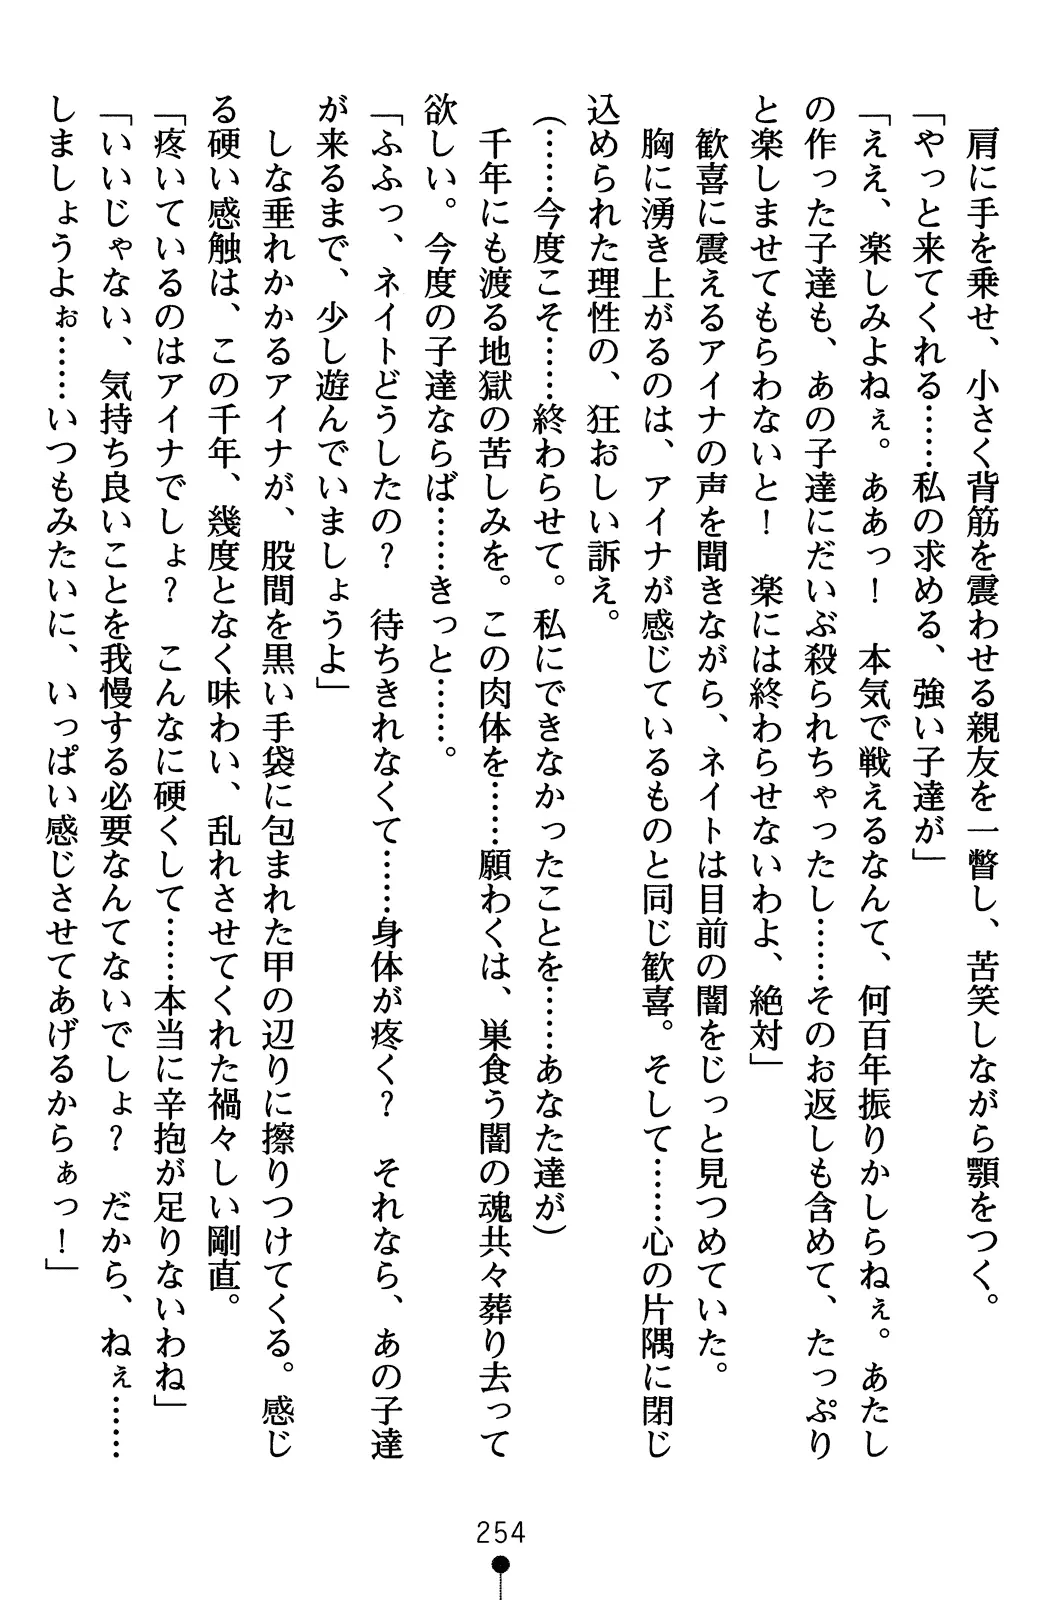 肩に手を乗せ、小さく背筋を震わせる親友を一瞥し、苦笑しながら顎をつく。
「やっと来てくれる……私の求める、強い子達が」
「ええ、楽しみよねぇ。ああっ！　本気で戦えるなんて、何百年振りかしらねぇ。あたし
の作った子達も、あの子達にだいぶ殺られちゃったし……そのお返しも含めて、たっぷり
と楽しませてもらわないと！　楽には終わらせないわよ、絶対」
　歓喜に震えるアイナの声を聞きながら、ネイトは目前の闇をじっと見つめていた。
　胸に湧き上がるのは、アイナが感じているものと同じ歓喜。そして……心の片隅に閉じ
込められた理性の、狂おしい訴え。
（……今度こそ……終わらせて。私にできなかったことを……あなた達が）
　千年にも渡る地獄の苦しみを。この肉体を……願わくは、巣食う闇の魂共々葬り去って
欲しい。今度の子達ならば……きっと……。
「ふふっ、ネイトどうしたの？　待ちきれなくて……身体が疼く？　それなら、あの子達
が来るまで、少し遊んでいましょうよ」
　しな垂れかかるアイナが、股間を黒い手袋に包まれた甲の辺りに擦りつけてくる。感じ
る硬い感触は、この千年、幾度となく味わい、乱れさせてくれた禍々しい剛直。
「疼いているのはアイナでしょ？　こんなに硬くして……本当に辛抱が足りないわね」
「いいじゃない、気持ち良いことを我慢する必要なんてないでしょ？　だから、ねぇ……
しましょうよぉ……いつもみたいに、いっぱい感じさせてあげるからぁっ！」
254